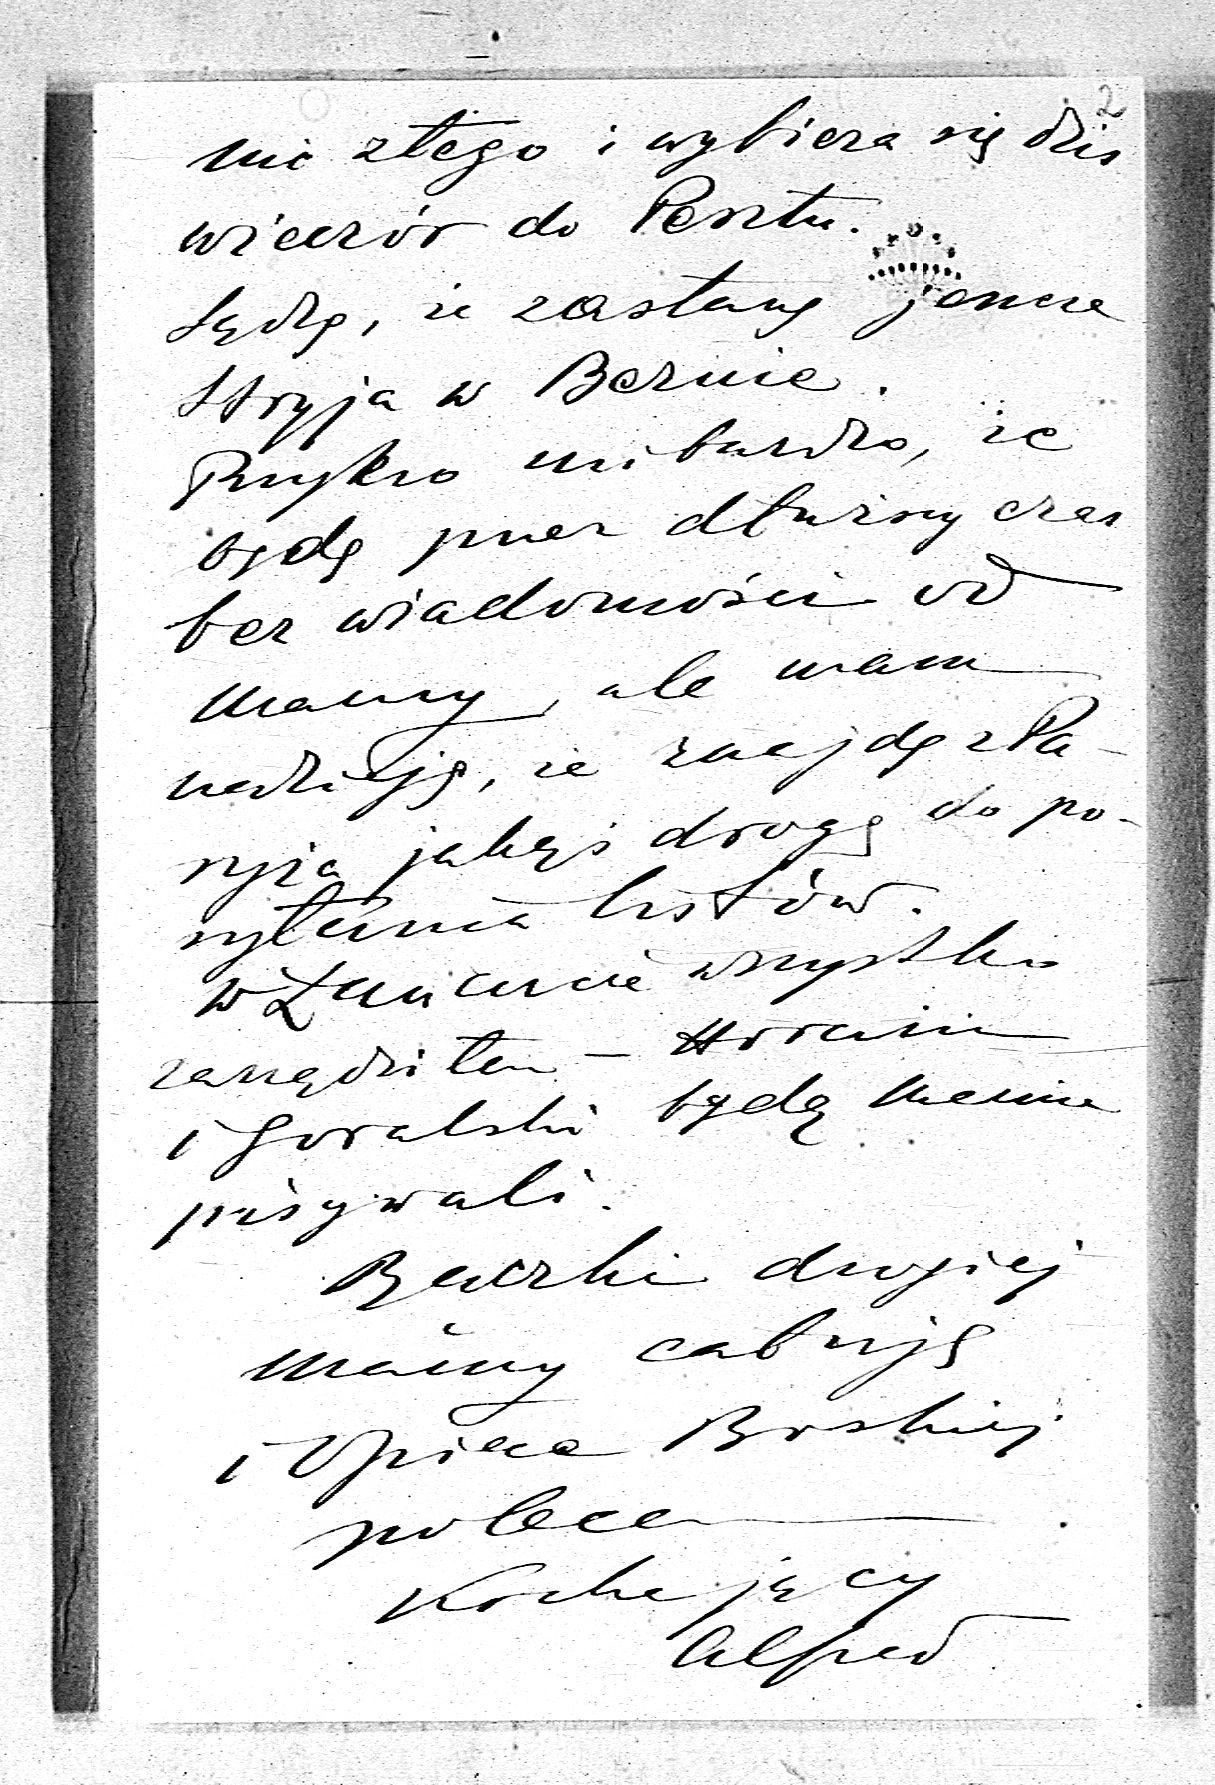 2
nic złego i wybiera się dziś
wieczór do Pesztu.
Sądzę, że zastanę jeszcze
Stryja w Bernie.
Przykro mi bardzo, że
będę przez dłuższy czas
bez wiadomości od
Mamy, ale mam
nadzieję, że znajdę z Pa-
ryża jakąś drogę do po-
syłania listów.
W Łańcucie wszystko
zarządziłem –
i Goralski będą Mamie
pisywali.
Rączki drogiej
Mamy całuję
i Opiece Boskiej
polecam
Kochający
Alfred